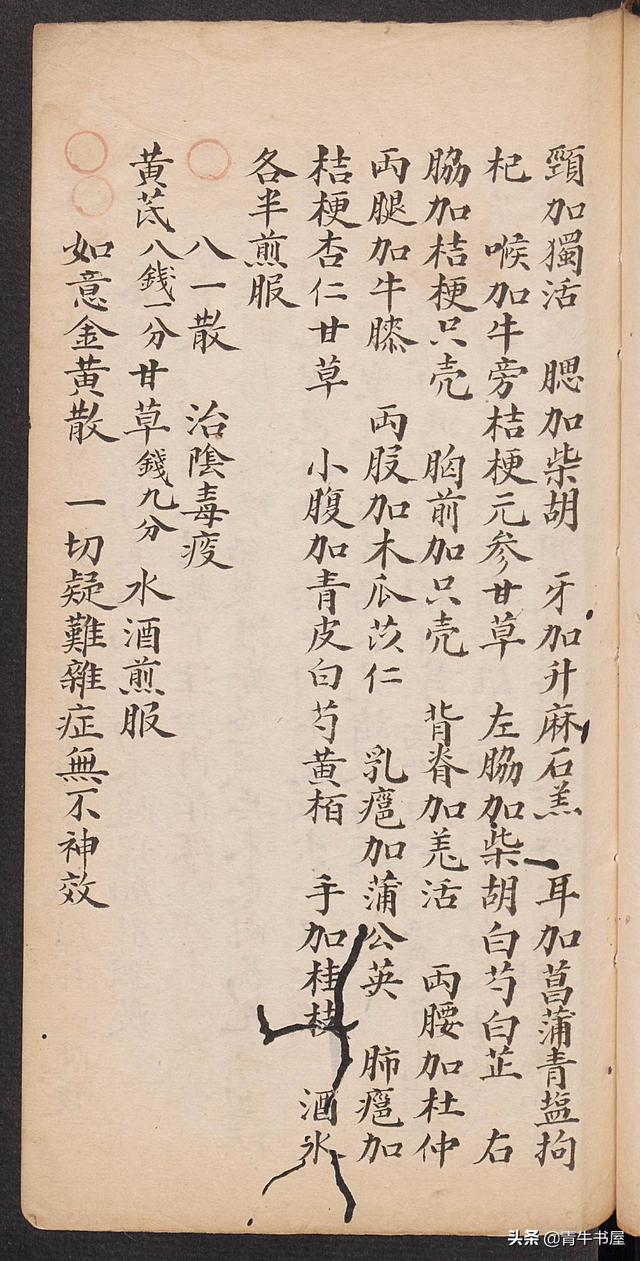 頸加獨活　腮加柴胡　牙加升麻石羔　耳加菖蒲青塩拘
杞　喉加牛旁桔梗元参甘草　左脇加柴胡白芍白芷　右
脇加桔梗只壳　胸前加只壳　背脊加羗活　両腰加杜仲
両腿加牛膝　両股加木瓜苡仁　乳癰加蒲公英　肺癰加
桔梗杏仁甘草　小腹加青皮白芍黄栢　手加桂枝　酒水
各半煎服
八一散　治陰毒疫
黄芪八錢一分甘草錢九分　水酒煎服
如意金黄散　一切疑難雜症無不神效
头条 @青牛书屋